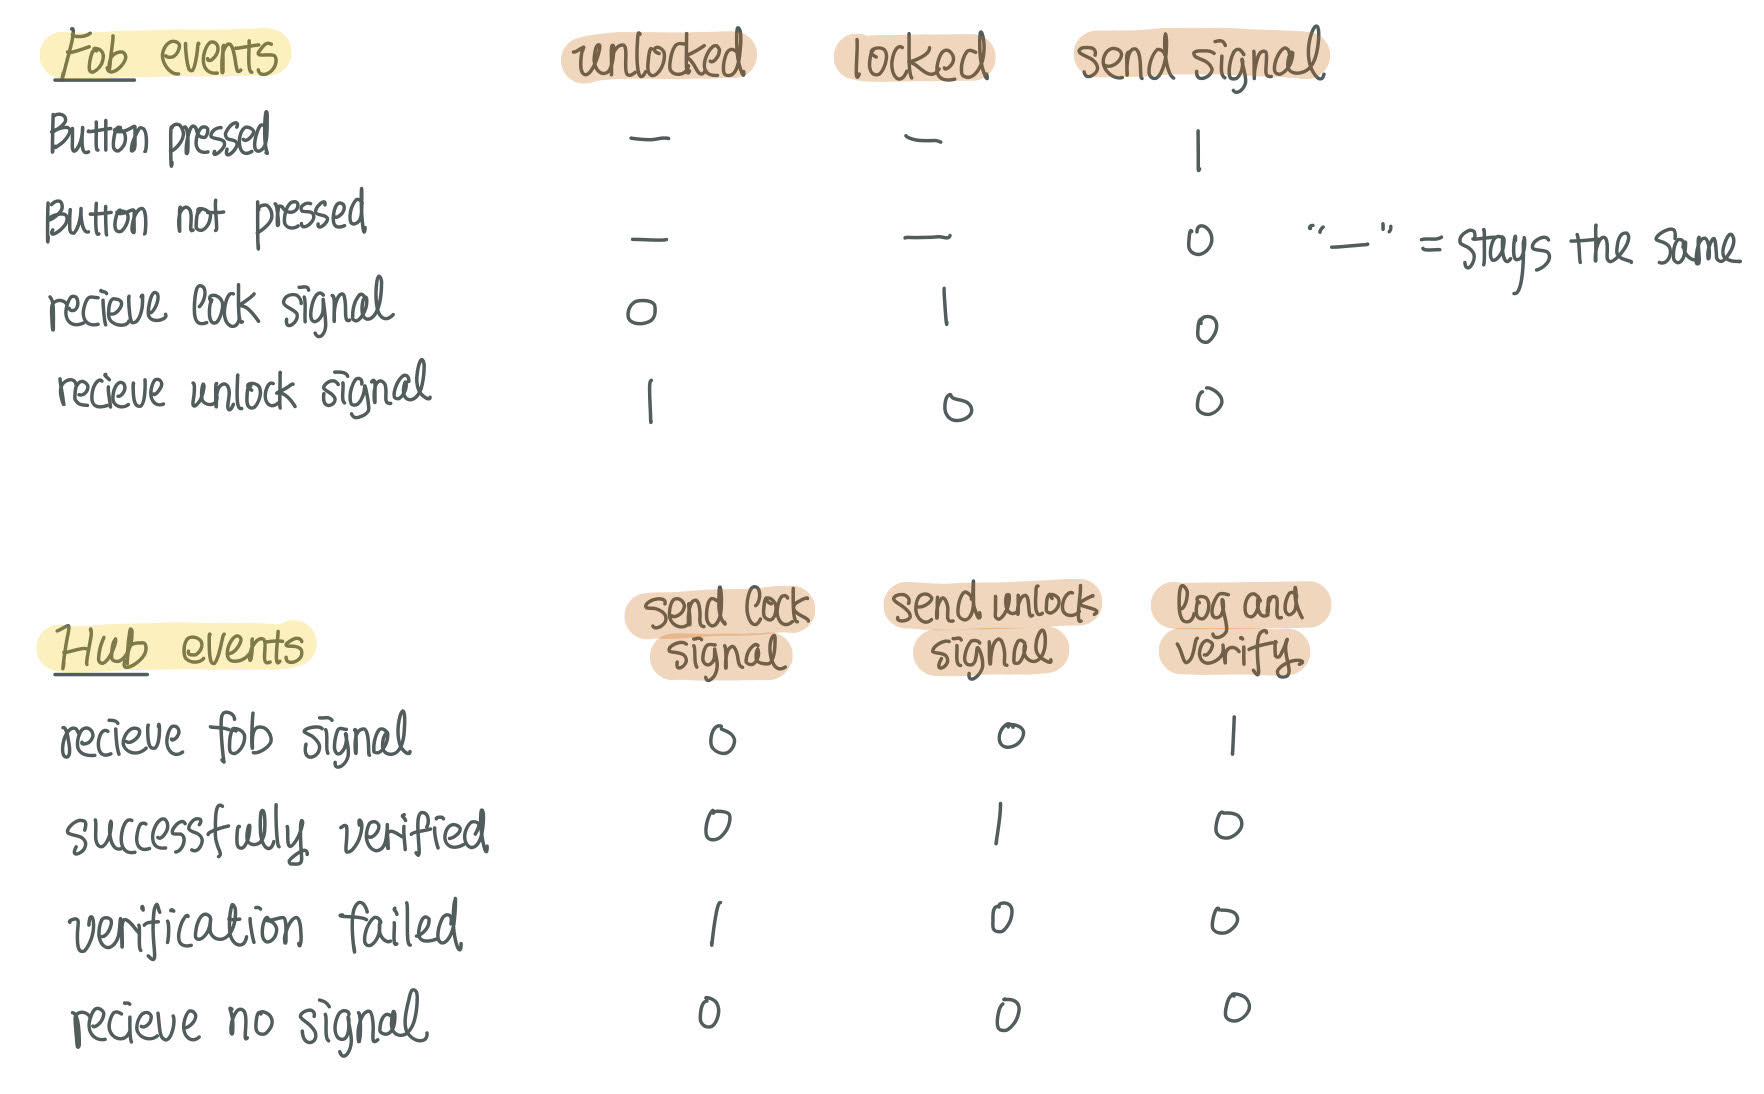 Fob events unlocked locked send signal
Button pressed — — 1
Button not pressed — — 0 "—" = stays the same
recieve lock signal 0 1 0
recieve unlock signal 1 0 0
Hub events send lock signal send unlock signal log and verify
recieve fob signal 0 0 1
successfully verified 0 1 0
verification failed 1 0 0
recieve no signal 0 0 0